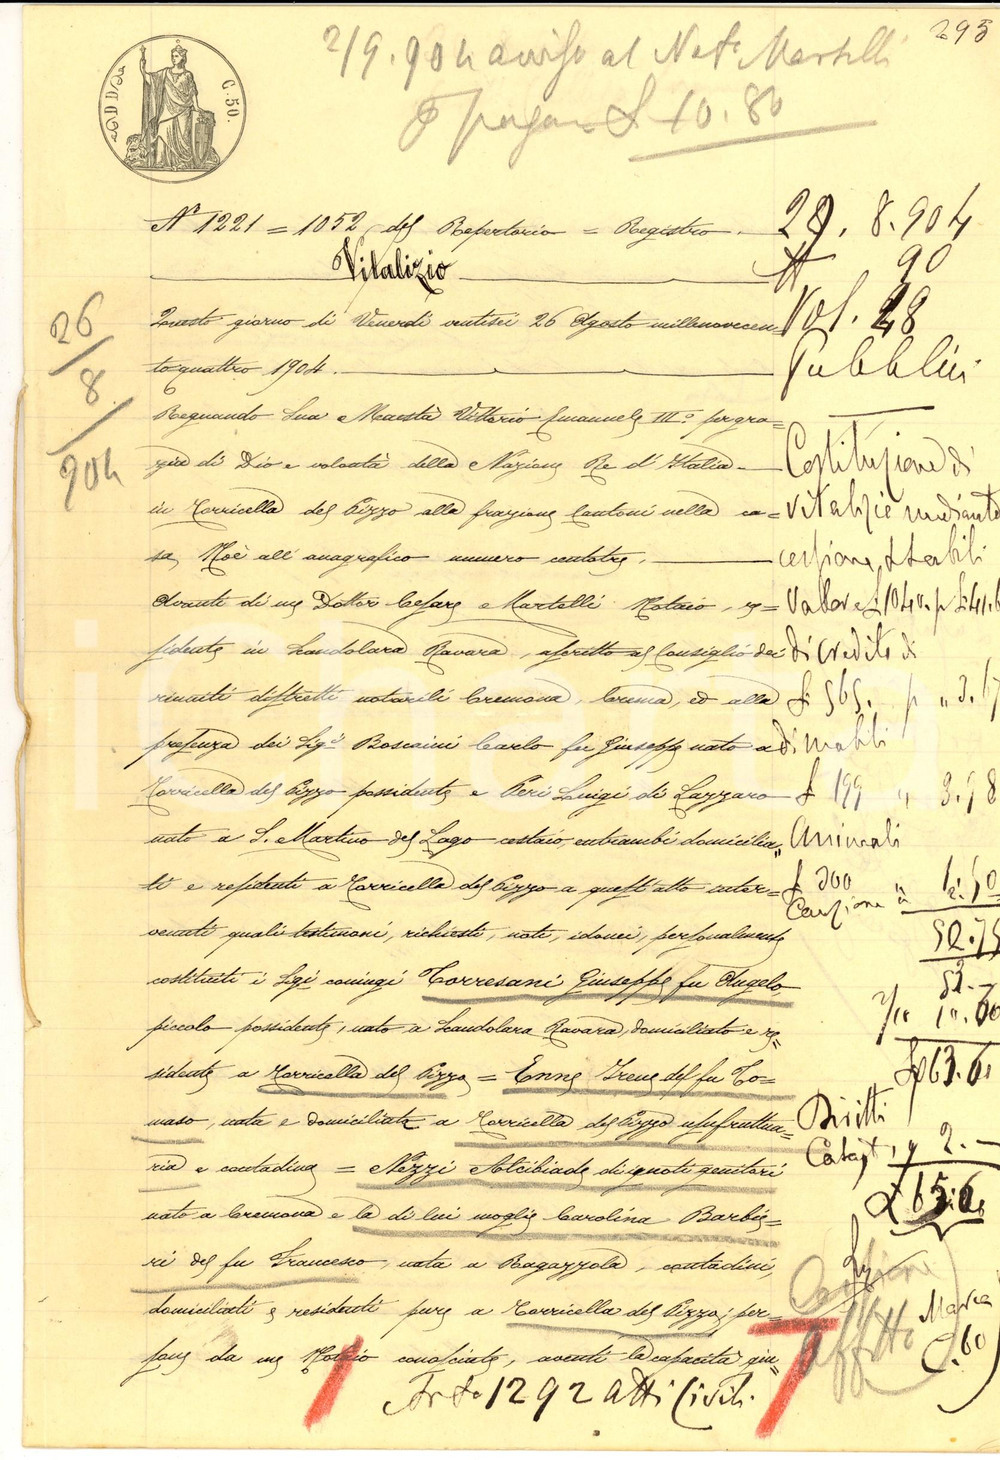 295
2/9.904 avviso al Not.° Martelli
10.80
C. 50.
N° 1221 = 1052 del Repertorio = Registro
Vitalizio
Questo giorno di Venerdì ventisei 26 Agosto millenovecen=
to quattro 1904.
Regnando Sua Maestà Vittorio Emanuele III° per gra=
zia di Dio e volontà della Nazione Re d'Italia
in Torricella del Pizzo alla frazione Cantoni nella ca=
sa Noè all'anagrafico numero centotre.
Avanti di me Dottor Cesare Martelli Notaio, re=
sidente in Scandolara Ravara, ascritto al Consiglio dei
riuniti distretti notarili Cremona, Crema, ed alla
presenza dei Sig.i Boscaini Carlo fu Giuseppe nato a
Torricella del Pizzo possidente e Peri Luigi di Lazzaro
nato a S. Martino del Lago cestaio, entrambi domicilia=
ti e residenti a Torricella del Pizzo a quest'atto inter=
venuti quali testimoni, richiesti, noti, idonei, personalmente
costituiti i Sigi coniugi Torresani Giuseppe fu Angelo,
piccolo possidente, nato a Scandolara Ravara, domiciliato e re=
sidente a Torricella del Pizzo = Enne Irene del fu To=
maso, nata e domiciliata a Torricella del Pizzo usufruttua=
ria e contadina = Nezzi Alcibiade di ignoti genitori
nato a Cremona e la di lui moglie Carolina Barbie=
ri del fu Francesco, nata a Ragazzola, contadini,
domiciliati e residenti pure a Torricella del Pizzo; per=
sone da me Notaio conosciute, aventi la capacità giu=
1292 Atti Civili
26
8
904
29. 8. 904
90
Vol. 28
Pubblici
Costituzione di
vitalizio mediante
cessione stabili
Valore £ 1040. p £ 41.6
di Credito di
£ 565. p " 3.
di mobili
£ 199 " 3.98
Animali
£ 300
Cauzione
52.75
52.-
10.60
63.60
Diritti
Catast. 2.-
Cauzione
affitto
Marca
C. 60